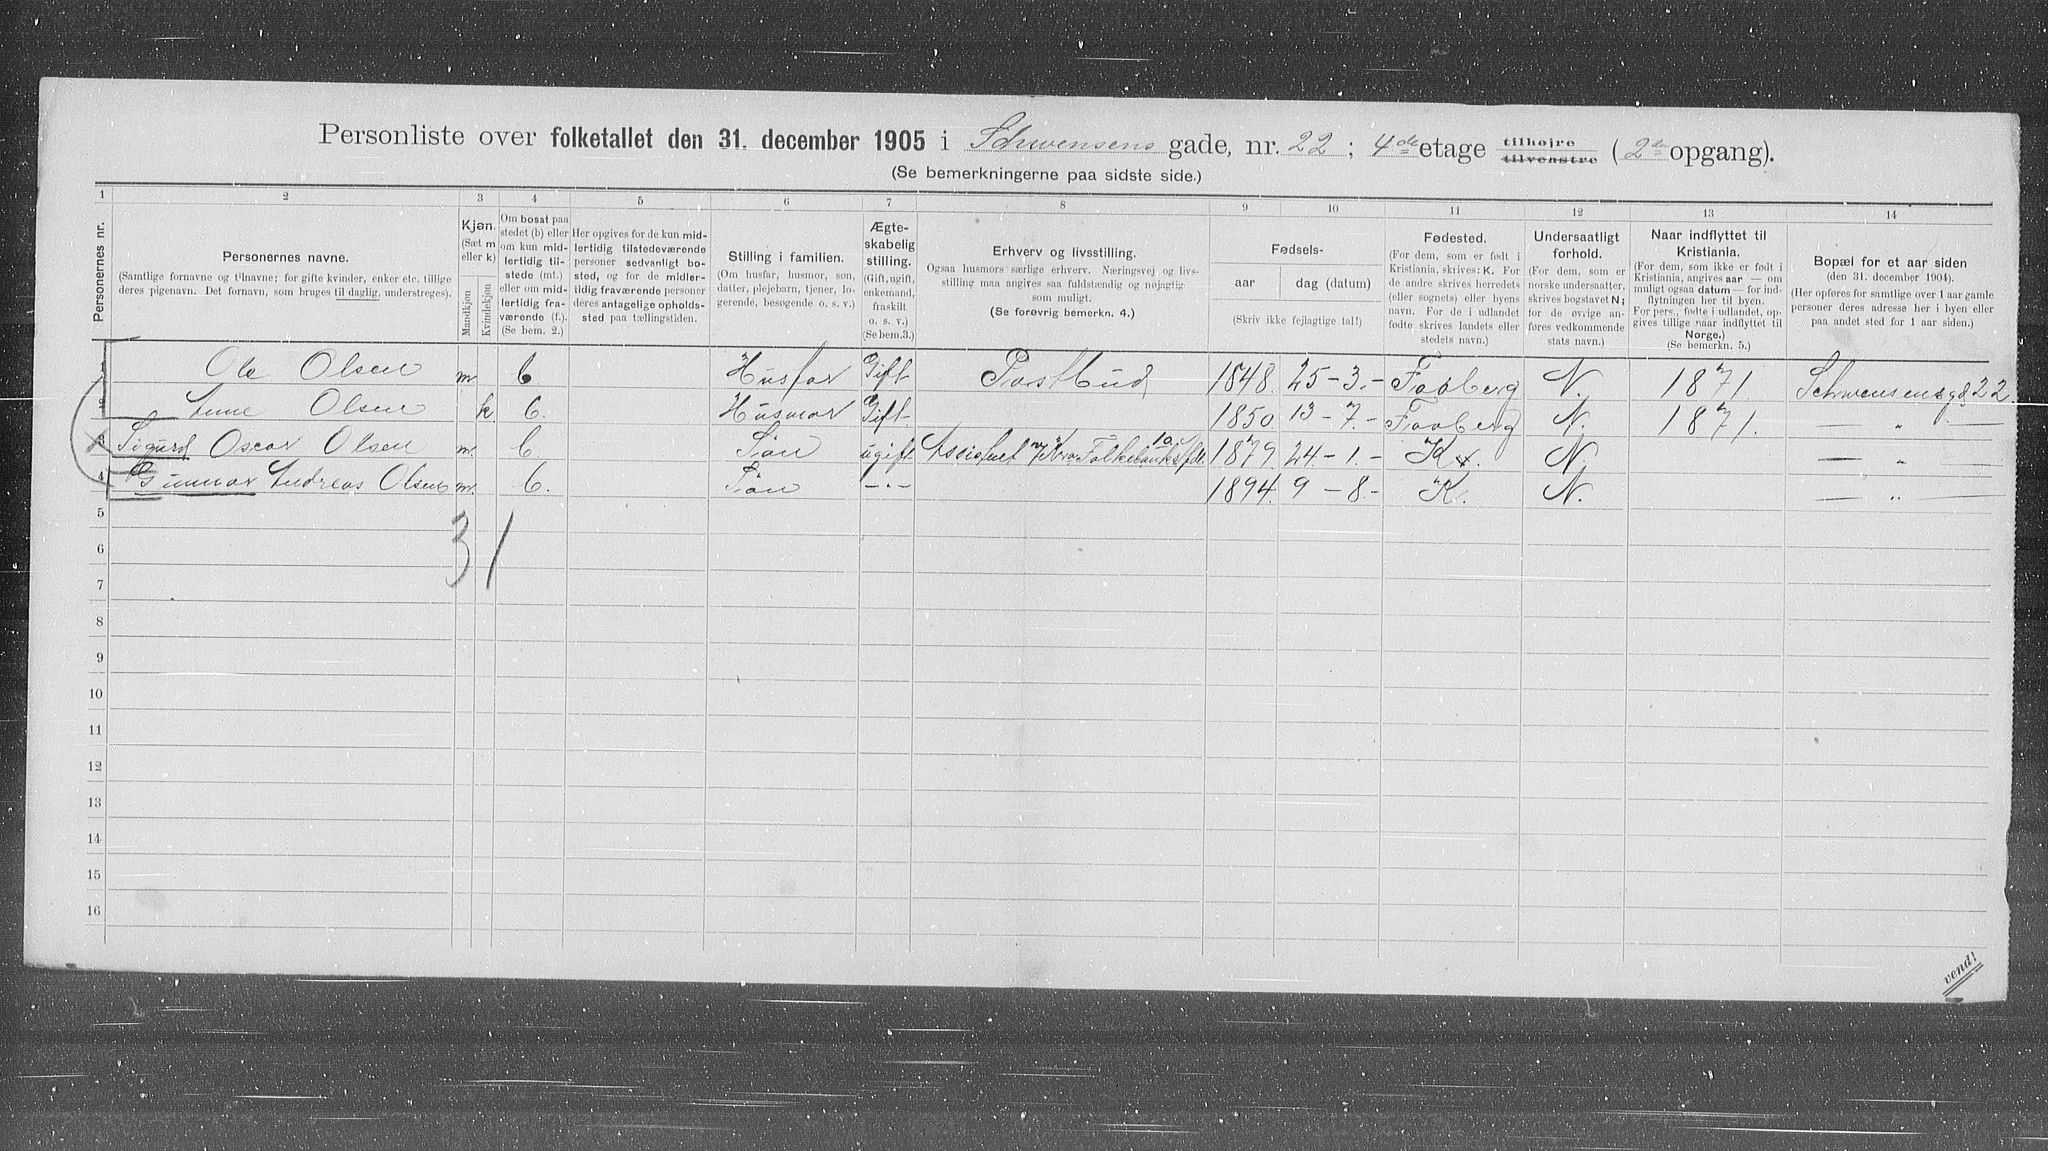 Personliste over folketallet den 31. december 1905 i Schwensens gade, nr. 22; 4de etage tilhøjre tilvenstre (2den opgang).
(Se bemerkningerne paa sidste side.)
1 2 3 4 5 6 7 8 9 10 11 12 13 14
Personernes nr.
Personernes navne.
(Samtlige fornavne og tilnavne; for gifte kvinder, enker etc. tillige deres pigenavn. Det fornavn, som bruges til daglig, understreges).
Kjøn.
(Sæt m eller k)
Mandkjøn
Kvindekjøn
Om bosat paa stedet (b) eller om kun midlertidig tilstede (mt.) eller om midlertidig fraværende (f.). (Se bem. 2.)
Her opgives for de kun midlertidig tilstedeværende personer sedvanligt bosted, og for de midlertidig fraværende personer deres antagelige opholdssted paa tællingstiden.
Stilling i familien.
(Om husfar, husmor, søn, datter, plejebarn, tjener, logerende, besøgende o. s. v.)
Ægteskabelig stilling.
(Gift, ugift, enkemand, fraskilt o. s. v.)
(Se bem.3.)
Erhverv og livsstilling.
Ogsaa husmors særlige erhverv. Næringsvej og livsstilling maa angives saa fuldstændig og nøjagtig som muligt.
(Se forøvrig bemerkn. 4.)
Fødsels-
aar dag (datum)
(Skriv ikke fejlagtige tal!)
Fødested.
(For dem, som er født i Kristiania, skrives: K. For de andre skrives herredets (eller sognets) eller byens navn. For de i udlandet fødte skrives landets eller stedets navn.)
Undersaatligt forhold.
(For dem, som er norske undersaatter, skrives bogstavet N; for de øvrige anføres vedkommende stats navn.)
Naar indflyttet til Kristiania.
(For dem, som ikke er født i Kristiania, angives aar — om muligt ogsaa datum — for indflytningen her til byen. For pers., fødte i udlandet, opgives tillige naar indflyttet til Norge.)
(Se bemerkn. 5.)
Bopæl for et aar siden
(den 31. december 1904).
(Her opføres for samtlige over 1 aar gamle personer deres adresse her i byen eller paa andet sted for 1 aar siden.)
1 Ole Olsen m. b Husfar Gift Postbud 1848. 25-3.- Faaberg N. 1871. Schwensensgd 22.
2 Anne Olsen k b. Husmor Gift 1850. 13-7.- Faaberg N. 1871. — " —
3 Sigurd Oscar Olsen m. b. Søn ugift Assistent 1879. 24-1.- K. N. — " —
4 Gunnar Andreas Olsen m. b. Søn —·— 1894. 9-8.- K. N. — " —
5
3 1
6
7
8
9
10
11
12
13
14
15
16
vend!